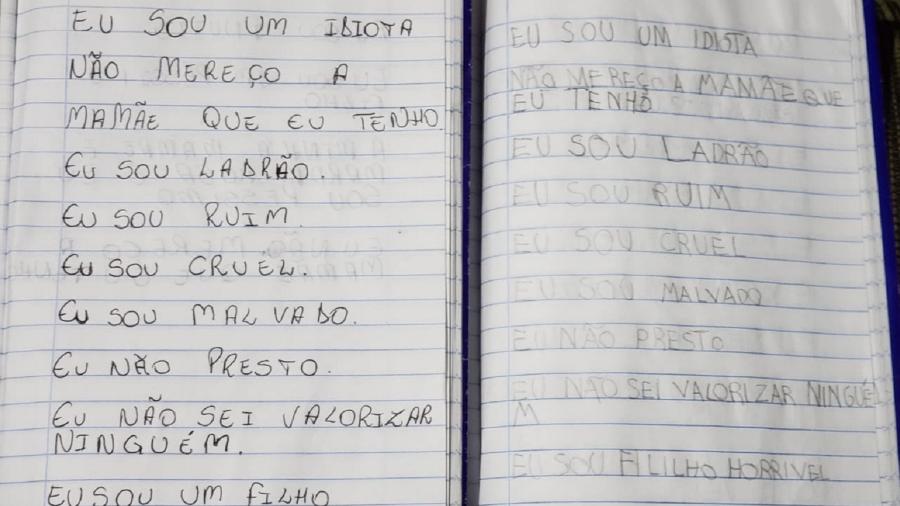 EU SOU UM IDIOTA
NÃO MEREÇO A
MAMÃE QUE EU TENHO.
EU SOU LADRÃO.
EU SOU RUIM.
EU SOU CRUEL.
EU SOU MALVADO.
EU NÃO PRESTO.
EU NÃO SEI VALORIZAR
NINGUÉM.
EU SOU UM FILHO
EU SOU UM IDIOTA
NÃO MEREÇO A MAMÃE QUE
EU TENHO
EU SOU LADRÃO
EU SOU RUIM
EU SOU CRUEL
EU SOU MALVADO
EU NÃO PRESTO
EU NÃO SEI VALORIZAR NINGUÉ
M
EU SOU FILILHO HORRIVEL